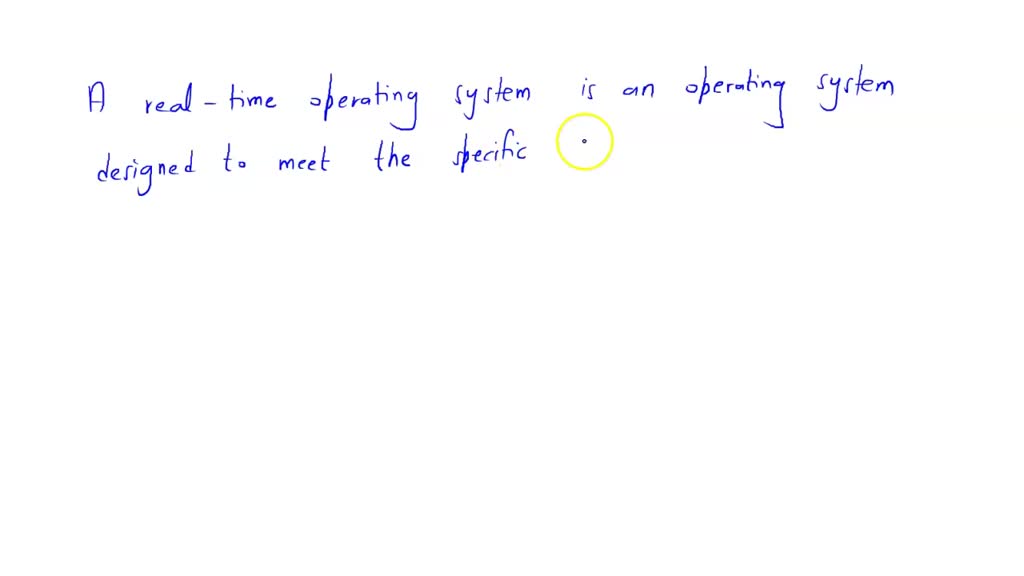 A real-time operating system is an operating system
designed to meet the specific